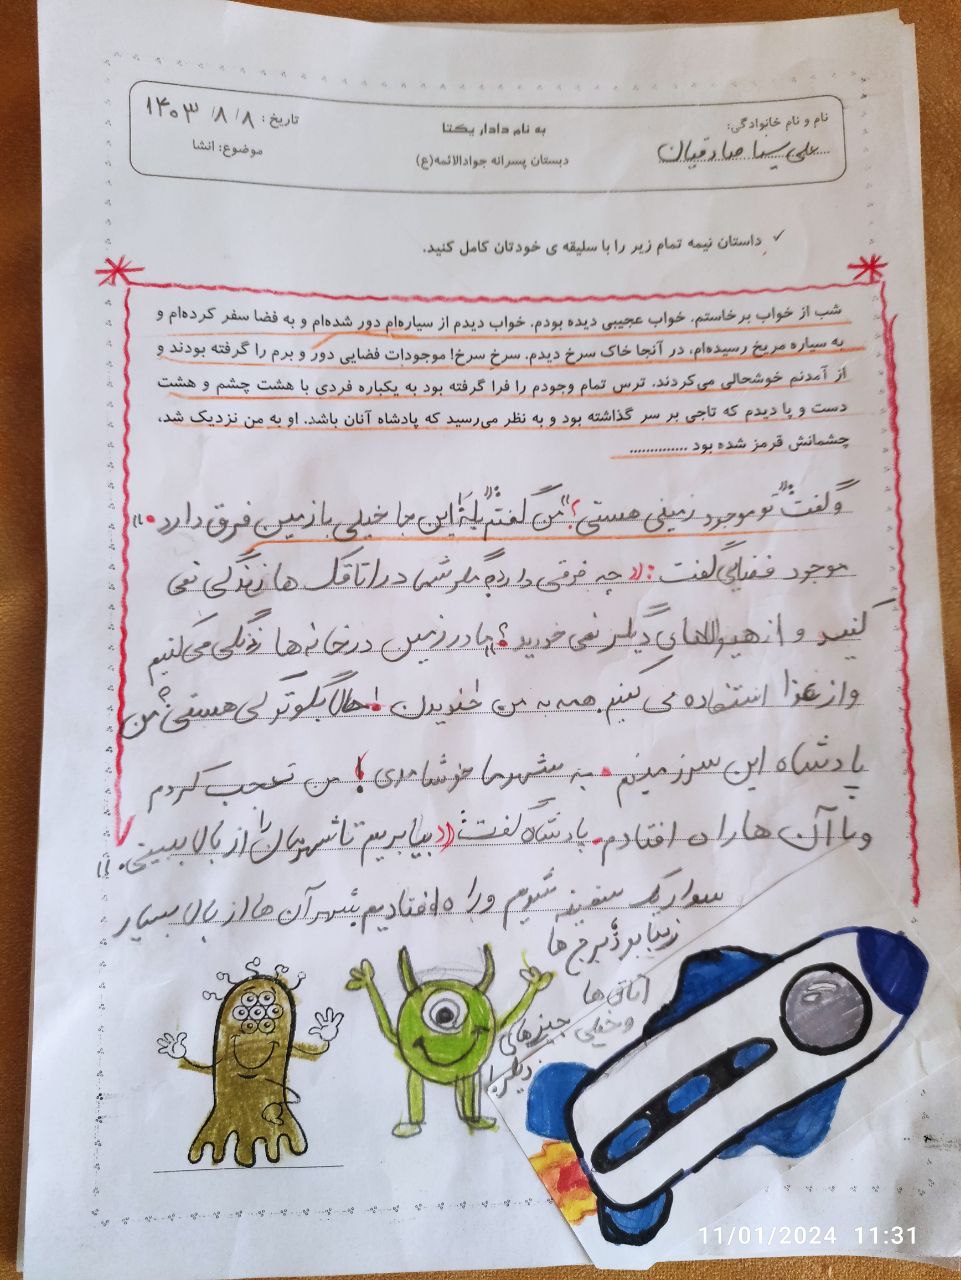 به نام دادار یکتا
دبستان پسرانه جوادالائمه(ع)
نام و نام خانوادگی:
علی سینا صادقیان
تاریخ: ۱۴۰۳ /۸ /۸
موضوع: انشا
✓ داستان نیمه تمام زیر را با سلیقه ی خودتان کامل کنید.
شب از خواب برخاستم. خواب عجیبی دیده بودم. خواب دیدم از سیاره‌ام دور شده‌ام و به فضا سفر کرده‌ام و
به سیاره مریخ رسیده‌ام، در آنجا خاک سرخ دیدم. سرخ سرخ! موجودات فضایی دور و برم را گرفته بودند و
از آمدنم خوشحالی می‌کردند. ترس تمام وجودم را فرا گرفته بود به یکباره فردی با هشت چشم و هشت
دست و پا دیدم که تاجی بر سر گذاشته بود و به نظر می‌رسید که پادشاه آنان باشد. او به من نزدیک شد،
چشمانش قرمز شده بود ..............
و گفت: «تو موجود زمینی هستی؟» من گفتم: «بله، این جا خیلی با زمین فرق دارد.»
موجود فضایی گفت: «چه فرقی دارد؟ مگر شما در اتاقک ها زندگی نمی
کنید و از هیولاهای دیگر نمی خورید؟» ما در زمین در خانه ها زندگی می کنیم
و از غذا استفاده می کنیم. همه به من خندیدن! حالا بگو تو کی هستی؟ من
پادشاه این سرزمینم. به شهر ما خوش آمدی! من تعجب کردم
و با آن ها راه افتادم. پادشاه گفت: «بیا بریم تا شهرمان را از بالا ببینی.»
سوار یک سفینه شدیم و راه افتادیم شهر آن ها از بالا بسیار
زیبا بود برج ها
اتاق ها
و خیلی
چیزهای
دیگر!
11/01/2024 11:31